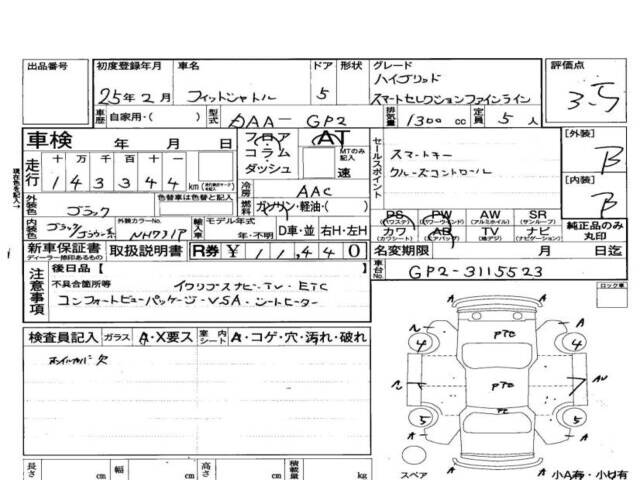 出品番号 初度登録年月 車名 ドア 形状 グレード 評価点
25年2月 フィットシャトル 5 ハイブリッド
スマートセレクションファインライン 3.5
車歴 自家用・( ) 型式 DAA-GP2 排気量 1300cc 定員 5人
車検 年 月 日 フロア AT セールスポイント [外装]
コラム・ MTのみ記入 スマートキー B
ダッシュ 速 クルーズコントロール
走行 十万千百十一
143344 km
冷房 AAC [内装]
現在色を記入→ 外装色 ブラック 色替車は色替と記入 燃料 ガソリン・軽油・( ) B
PS PW AW SR
(パワステ) (パワーウィンド) (アルミホイル) (サンルーフ)
内装色 外装カラーNo. NH731P 輸入車 モデル年式 カワ AB TV ナビ 純正品のみ
年・不明 D車・並 右H・左H (カワシート) (エアバッグ) (地デジ) (ナビゲーション) 丸印
新車保証書 取扱説明書 R券 ¥11,440 名変期限 月 日迄
ディーラー捺印あるもの
注意事項 後日品【 】 車台No. GP2-3115523
不具合箇所等 ナビ-TV-ETC
コンフォートビューパッケージ-VSA-シートヒーター
ロック車
検査員記入 ガラス A・X要ス 室内シート A・コゲ・穴・汚れ・破れ
ホイルカバー欠
A A
4 PTC 4
PTC
5 5
A A
スペア 小A有・小U有
長さ cm 幅 cm 高さ cm 積載量 kg